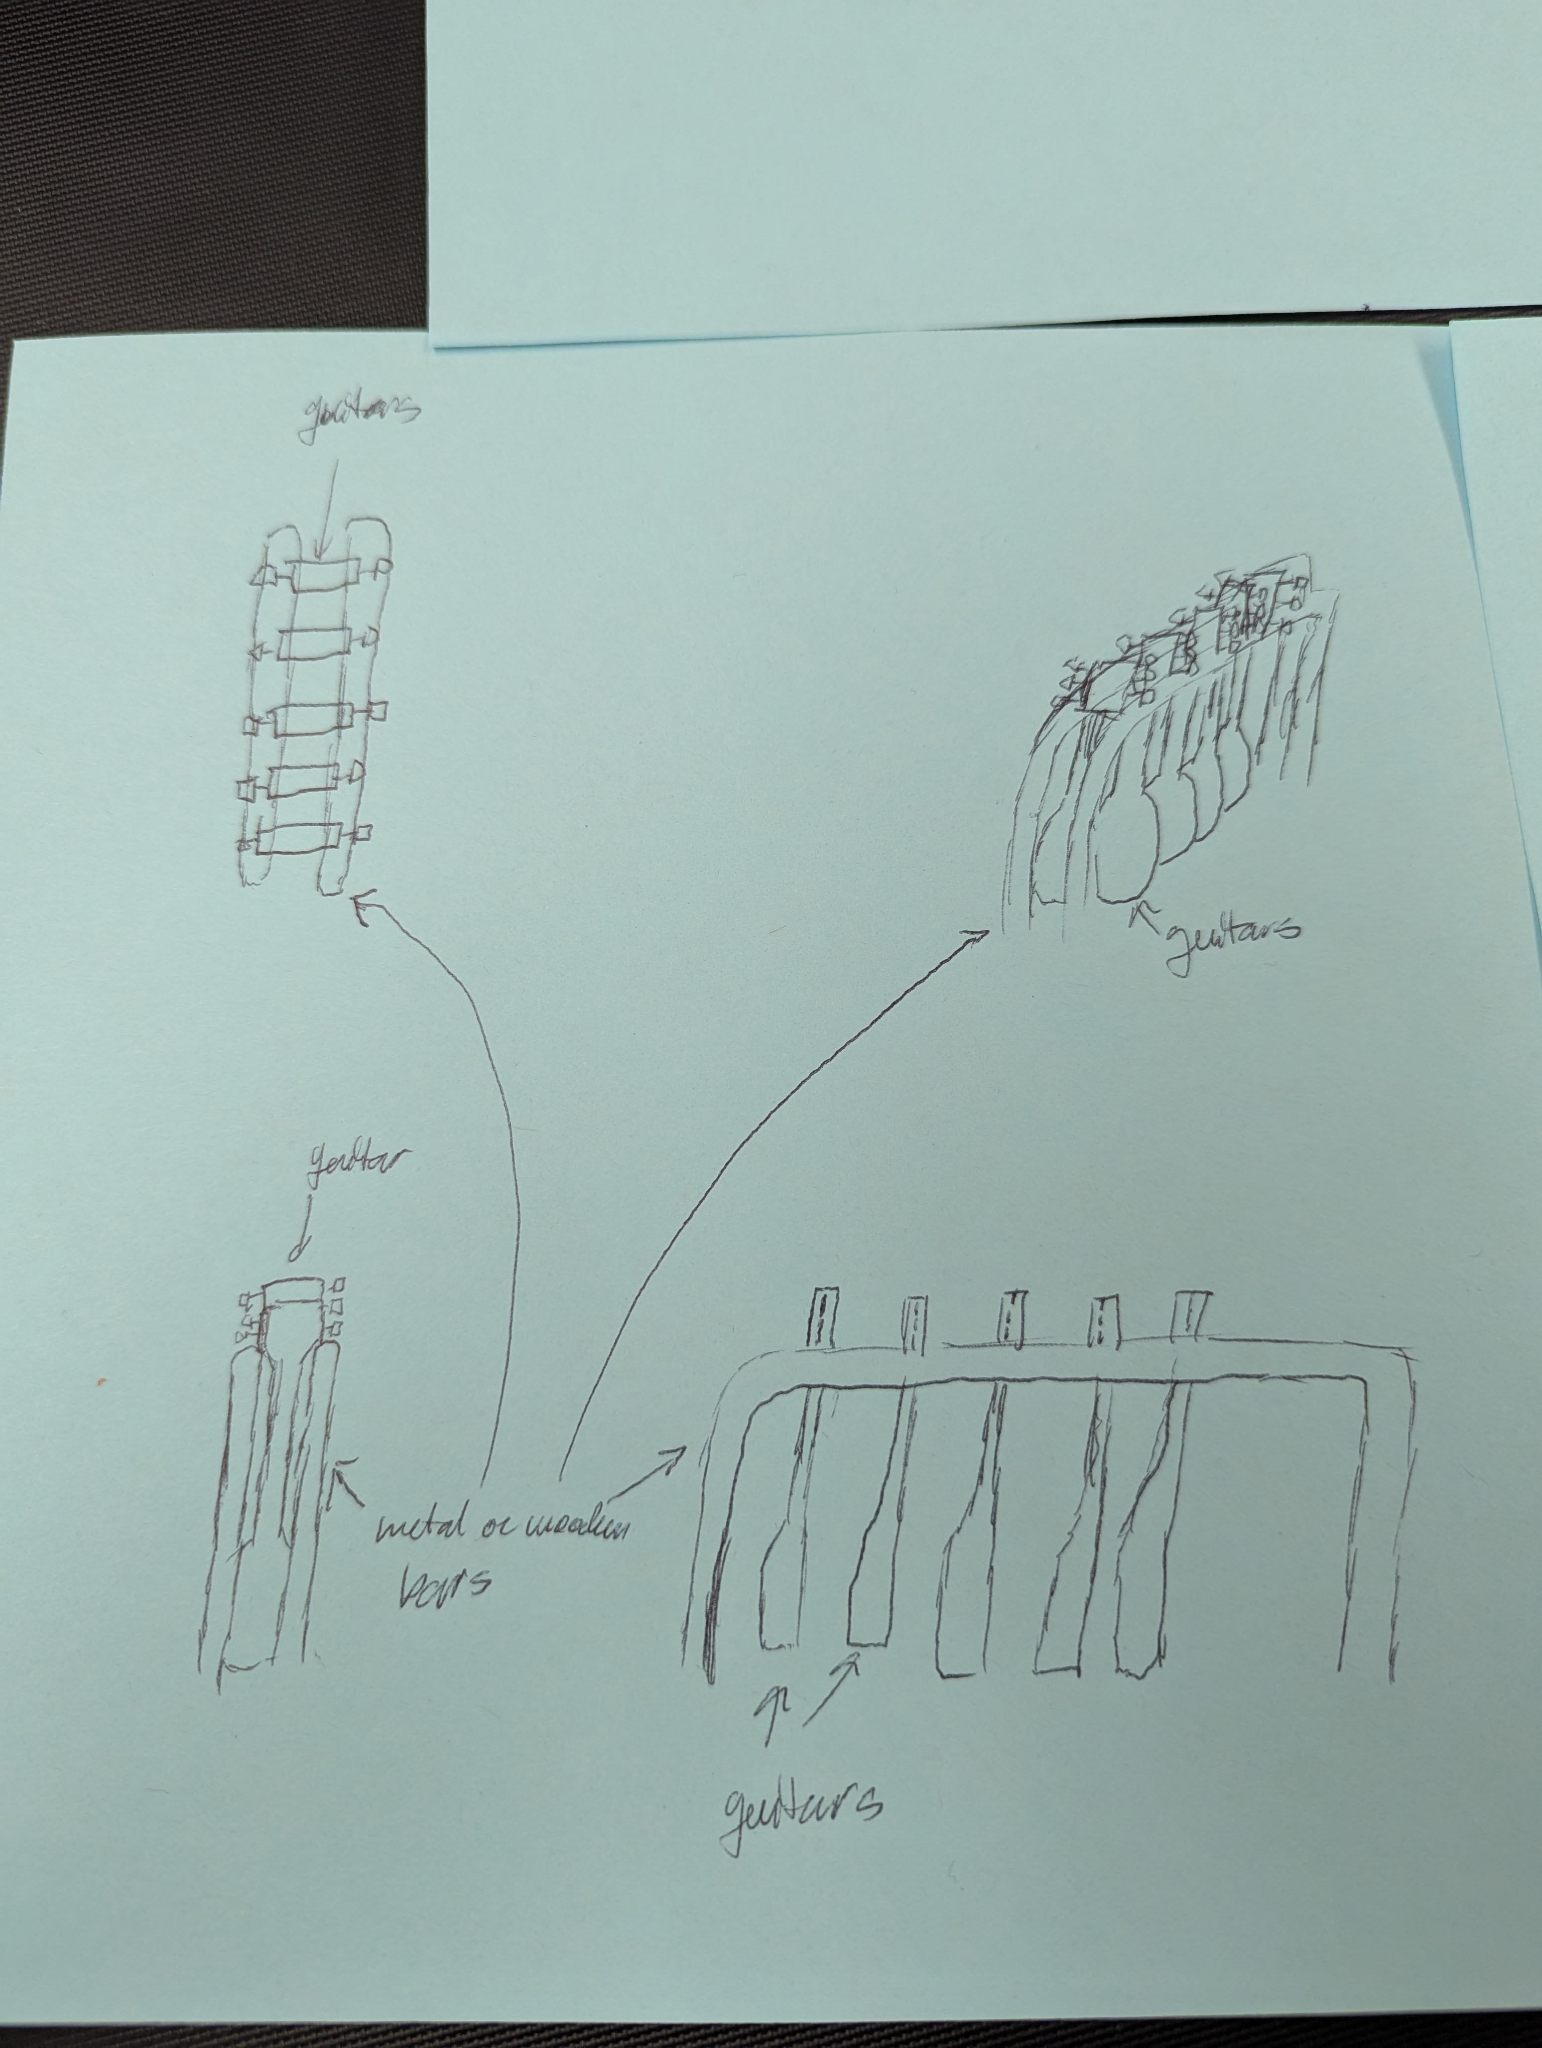 guitars
guitars
guitar
metal or wooden
bars
guitars